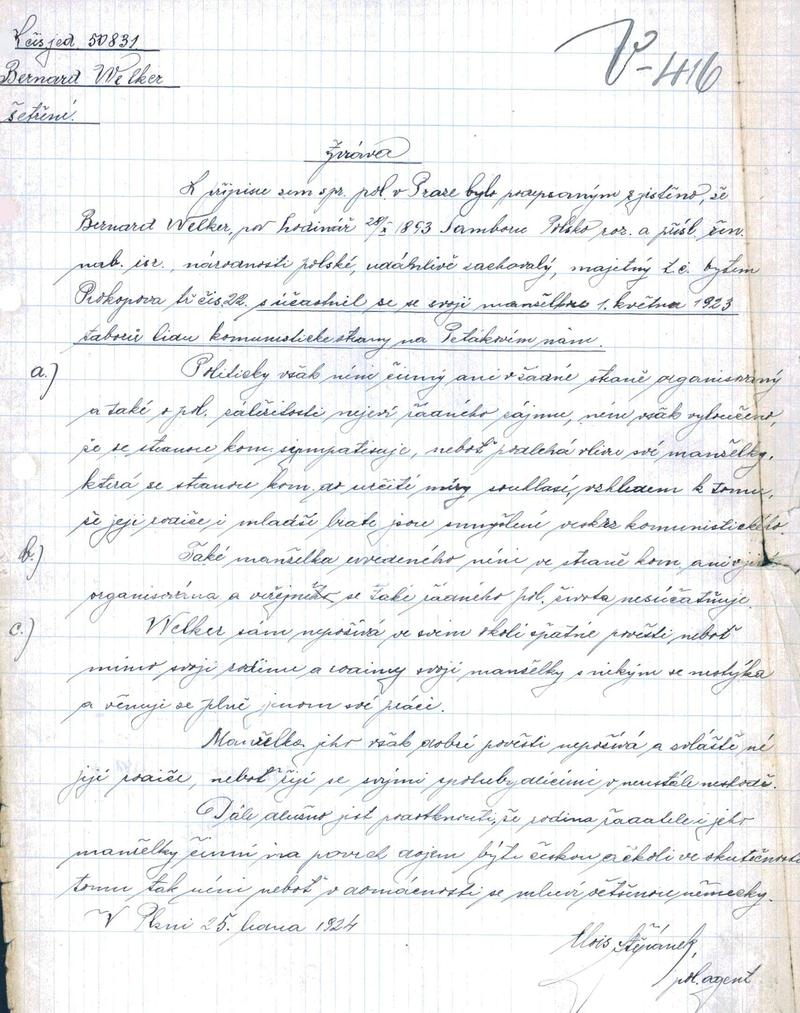 K čís jed 50831
V-416
Bernard Welker
šetření.
Zpráva
K přípisu sem spr. pol. v Praze bylo podepsaným zjištěno, že
Bernard Welker, pov hodinář 28/X 1893 Polsko nar. a přísl.
nab. isr., národnosti polské, zachovalý, majetný t.č. bytem
Prokopova tř čís 22. súčastnil se se svojí manželkou 1. května 1923
táboru lidu komunistické strany na Petákovím nám.
a.) Politicky však není činný ani v žádné straně organisovaný
a také o pol. záležitosti nejeví žádného zájmu, není však vyloučeno,
že se stranou kom. sympatisuje, neboť podléhá vlivu své manželky,
která se stranou kom. do určité míry souhlasí, vzhledem k tomu,
že její rodiče i mladší bratr jsou smýšlení veskrz komunistického.
b.) Také manželka uvedeného není ve straně kom. ani
organisována a veřejného se také žádného pol. života nesúčatňuje.
c.) Welker sám nepožívá ve svém okolí špatné pověsti neboť
mimo svojí rodinu a rodiny svojí manželky s nikým se nestýká
a věnuje se plně jenom své práci.
Manželka jeho však dobré pověsti nepožívá a zvláště né
její rodiče, neboť žijí se svými spolubydlícími v neustálé neshodě.
Dále slušno jest podotknouti, že rodina žadatele i jeho
manželky činní na povrch dojem býti českou ačkoli ve skutečnosti
tomu tak není neboť v domácnosti se mluví většinou německy.
V Plzni 25. ledna 1924
Alois Štěpánek,
pol. agent